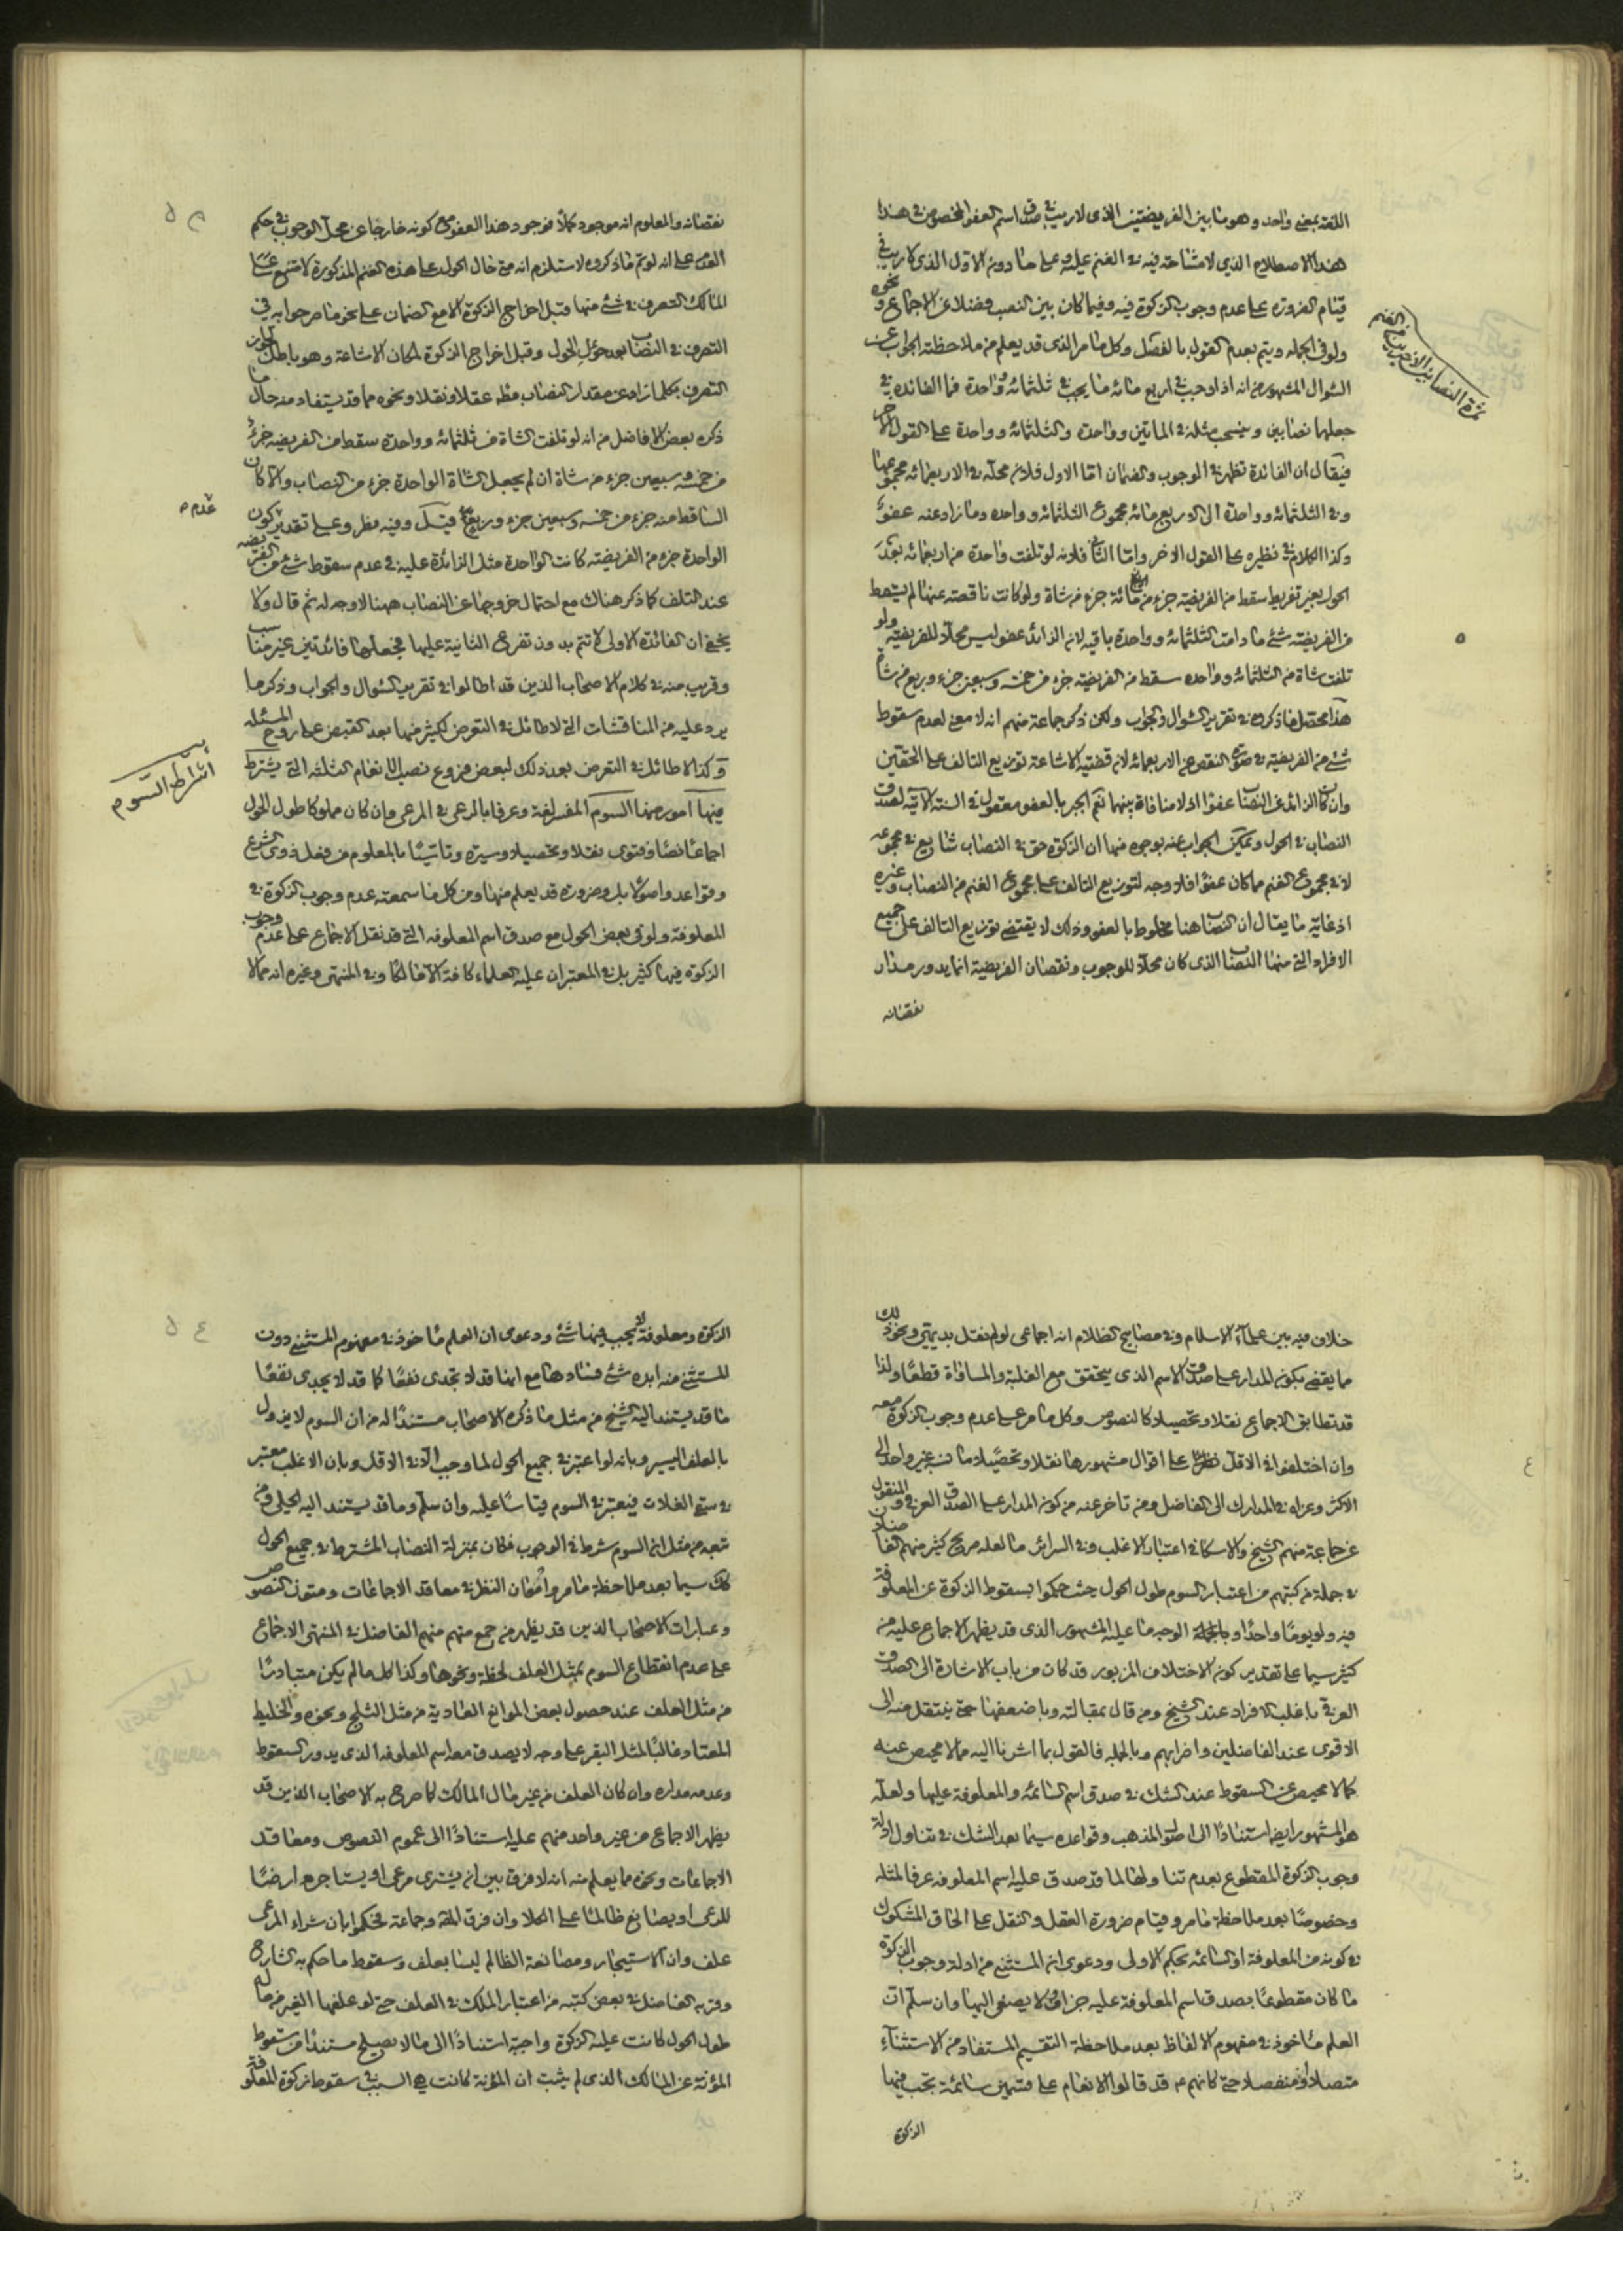 اللغة بمعنى واحد وهو ما بين الفريضتين الذى لا ريب فى صدق اسم العفو المخصوص فى هذا
هذا الاصطلاح الذي لا مشاحة فيه فى الغنم عليه وعلى ما دون الاول الذى لا ريب فى
قيام الضرورة على عدم وجوب الزكوة فيه وفيما كان بين النصب فضلا عن الاجماع ونحوه
ولو فى الجمله ويتم بعدم القول بالفصل وكل ما مر الذى قد يعلم من ملاحظته الجواب عن
السؤال المشهور من انه اذا وجب فى اربع مائه ما يجب فى ثلثمائه وواحدة فما الفائده فى
جعلها نصابين وينسحب مثله فى الماتين وواحدة والثلثمائه وواحدة على القول الاخر
فيقال ان الفائدة تظهر فى الوجوب والضمان اما الاول فلان محله فى الاربعمائه مجموعها
وفى الثلثمائه وواحدة الى الاربع مائه مجموع الثلثمائه وواحده وما زاد عنه عفو
وكذا الكلام فى نظيره على القول الاخر واما الثانى فلانه لو تلفت واحدة من اربعمائه بعد
الحول بغير تفريط سقط من الفريضة جزء من مائة جزء من شاة ولو كانت ناقصة عنها لم يسقط
من الفريضته شئ ما دامت الثلثمائه وواحدة باقيه لان الزائد عفو ليس محلا للفريضه ولو
تلفت شاة من الثلثمائه وواحده سقط من الفريضه جزء من خمسه وسبعين جزء وربع من شاة
هذا محصل ما ذكروه فى تقرير السؤال والجواب ولكن ذكر جماعة منهم انه لا معنى لعدم سقوط
شئ من الفريضه فى صورة النقص عن الاربعمائه لان قضية الاشاعة توزيع التالف على الحقين
وان كان الزائد عن النصاب عفوا اذ لا منافاة بينهما نعم الجبر بالعفو معقول فى السنة الآتيه لصدق
النصاب فى الحول ويمكن الجواب عنه بوجوه منها ان الزكوة حق فى النصاب شايع فى مجموعه
لا فى مجموع الغنم مما كان عفوا فلا وجه لتوزيع التالف على مجموع الغنم من النصاب وغيره
اذ غاية ما يقال ان النصاب هنا مخلوط بالعفو وذلك لا يقتضى توزيع التالف على جميع
الافراد التى منها النصاب الذى كان محلا للوجوب ونقصان الفريضة انما يدور مدار
نقصانه
نقصانه والمعلوم انه موجود كملا فوجود هذا العفو مع كونه خارجا عن محل الوجوب فى حكم
العدم على انه لو تم ما ذكروه لاستلزم انه متى حال الحول على هذه الغنم المذكورة لامتنع على
المالك التصرف فى شئ منها قبل اخراج الزكوة الا مع الضمان على نحو ما صرحوا به فى
التصرف فى النصاب بعد حؤل الحول وقبل اخراج الزكوة لمكان الاشاعة وهو باطل لجواز
التصرف بكلما زاد عن مقدار النصاب مظه عقلا ونقلا ونحوه مما قد يستفاد منه حال ما
ذكره بعض الافاضل من انه لو تلفت الشاة من ثلثمائه وواحده سقط من الفريضه جزء
من خمسه وسبعين جزء من شاة ان لم يجعل الشاة الواحدة جزء من النصاب والا كان
الساقط منه جزء من خمسه وسبعين جزء وربع فيشكل وفيه نظر وعلى تقدير كون
عدم
الواحدة جزء من الفريضته كانت الواحدة مثل الزائدة عليه فى عدم سقوط شئ من الفريضه
عند التلف كما ذكر هناك مع احتمال خروجها عن النصاب ههنا لا وجه له ثم قال ولا
يخفى ان الفائدة الاولى لا تتم بدون تفرع الثانية عليها فجعلها فائدتين غير مناسب
وقريب منه فى كلام الاصحاب الذين قد اطالوا فى تقرير السؤال والجواب وذكر ما
يرد عليه من المناقشات التى لا طائل فى التعرض لكثير منها بعد القبض على روح المسئله
وكذا لا طائل فى التعرض بعد ذلك لبعض فروع نصب الانعام الثلثه التى يشترط
اشتراط السوم
فيها امور منها السوم المفسر لغة وعرفا بالرعى فى المرعى وان كان مملوكا طول الحول
اجماعا نصا وفتوى نقلا وتحصيلا وسيرة وتاسيا بالمعلوم من فعل ذوى الشرع
وقواعد واصولا بل وضرورة قد يعلم منها ومن كل ما سمعته عدم وجوب الزكوة فى
المعلوفة ولو فى بعض الحول مع صدق اسم المعلوفه التى قد نقل الاجماع على عدم وجوب
الزكوة فيها كثير بل فى المعتبر ان عليه العلماء كافة الا مالكا وفى المنتهى وغيره انه مما لا
خلاف فيه بين علماء الاسلام وفى مصابيح الظلام انه اجماعى لو لم نقل بديهى ونحو ذلك
مما يقضى بكون المدار على صدق الاسم الذى يتحقق مع الغلبة والمساواة قطعا ولذا
قد تطابق الاجماع نقلا وتحصيلا كالنصوص وكل ما مر على عدم وجوب الزكوة معه
وان اختلفوا فى الاقل على اقوال مشهورها نقلا وتحصيلا ما نسبه غير واحد الى
الاكثر وعزاه فى المدارك الى الفاضل ومن تاخر عنه من كون المدار على الصدق العرفى والمنقول
عن جماعة منهم الشيخ والاسكافى اعتبار الاغلب وفى السرائر ما لعله صريح كثير منهم
فى جملة من كتبهم من اعتبار السوم طول الحول حيث حكموا بسقوط الزكوة عن المعلوفة
فيه ولو يوما واحدا وبالجملة الوجه ما عليه المشهور الذى قد يظهر الاجماع عليه من
كثير سيما على تقدير كون الاختلاف المزبور قد كان من باب الاشارة الى الصدق
العرفى باغلب الافراد عند الشيخ ومن قال بمقالته وباضعفها حتى ينتقل منه الى
الاقوى عند الفاضلين واضرابهم وبالجمله فالقول بما اشرنا اليه مما لا محيص عنه
كما لا محيص عن السقوط عند الشك فى صدق اسم السائمه والمعلوفة عليها ولعله
هو المشهور ايضا استنادا الى اصول المذهب وقواعده سيما بعد الشك فى تناول ادلة
وجوب الزكوة المقطوع بعدم تناولها لما قد صدق عليه اسم المعلوفه عرفا لمثله
وخصوصا بعد ملاحظة ما مر وقيام ضرورة العقل والنقل على الحاق المشكوك
فى كونه من المعلوفة او السائمه بحكم الاولى ودعوى ان المستثنى من ادلة وجوب الزكوة
ما كان مقطوعا بصدق اسم المعلوفة عليه جزاف لا يصغى اليها وان سلم ان
العلم ماخوذ فى مفهوم الالفاظ بعد ملاحظة التقسيم المستفاد من الاستثناء
متصلا او منفصلا حتى كانهم قد قالوا الانعام على قسمين سائمة تجب فيها
الزكوة
الزكوة ومعلوفة لا يجب فيها شئ ودعوى ان العلم ماخوذ فى مفهوم المستثنى دون
المستثنى منه ابده شئ فسادها مع انها قد لا تجدى نفعا كما قد لا يجدى نفعا
ما قد يستند اليه الشيخ من مثل ما ذكره الاصحاب مستندا له من ان السوم لا يزول
بالعلف اليسير وبانه لو اعتبر فى جميع الحول لما وجب الا فى الاقل وبان الاغلب معتبر
فى سقى الغلات فيعتبر فى السوم قياسا عليه وان سلم وما قد يستند اليه الحلى ومن
تبعه من مثل ان السوم شرط فى الوجوب فكان بمنزلة النصاب المشترط فى جميع الحول
كك سيما بعد ملاحظة ما مر وامعان النظر فى معاقد الاجماعات ومتون النصوص
وعبارات الاصحاب الذين قد يظهر من جمع منهم منهم الفاضل فى المنتهى الاجماع
على عدم انقطاع السوم بمثل العلف لحظة ونحوها وكذا كل ما لم يكن متبادرا
من مثل العلف عند حصول بعض الموانع العادية من مثل الثلج ونحوه والخليط
المعتاد غالبا لمثل البقر على وجه لا يصدق معه اسم المعلوفه الذى يدور السقوط
وعدمه مداره وان كان العلف من غير مال المالك كما صرح به الاصحاب الذين قد
يظهر الاجماع من غير واحد منهم عليه استنادا الى عموم النصوص ومعاقد
الاجماعات ونحوه مما يعلم منه انه لا فرق بين ان يشترى مرعى او يستاجر ارضا
للرعى او يصانع ظالما على الكلا وان فرق وجماعة فحكموا بان شراء المرعى
علف وان الاستيجار ومصانعة الظالم ليسا بعلف وسقوط ما حكم به الشارح
وقربه الفاضل فى بعض كتبه من اعتبار الملك فى العلف حتى لو علفها الغير من ماله
طول الحول كانت عليه الزكوة واجبة استنادا الى ما لا يصلح مستندا من سقوط
المؤنة عن المالك الذى لم يثبت ان المؤنة كانت هى السبب فى سقوط زكوة المعلوفة